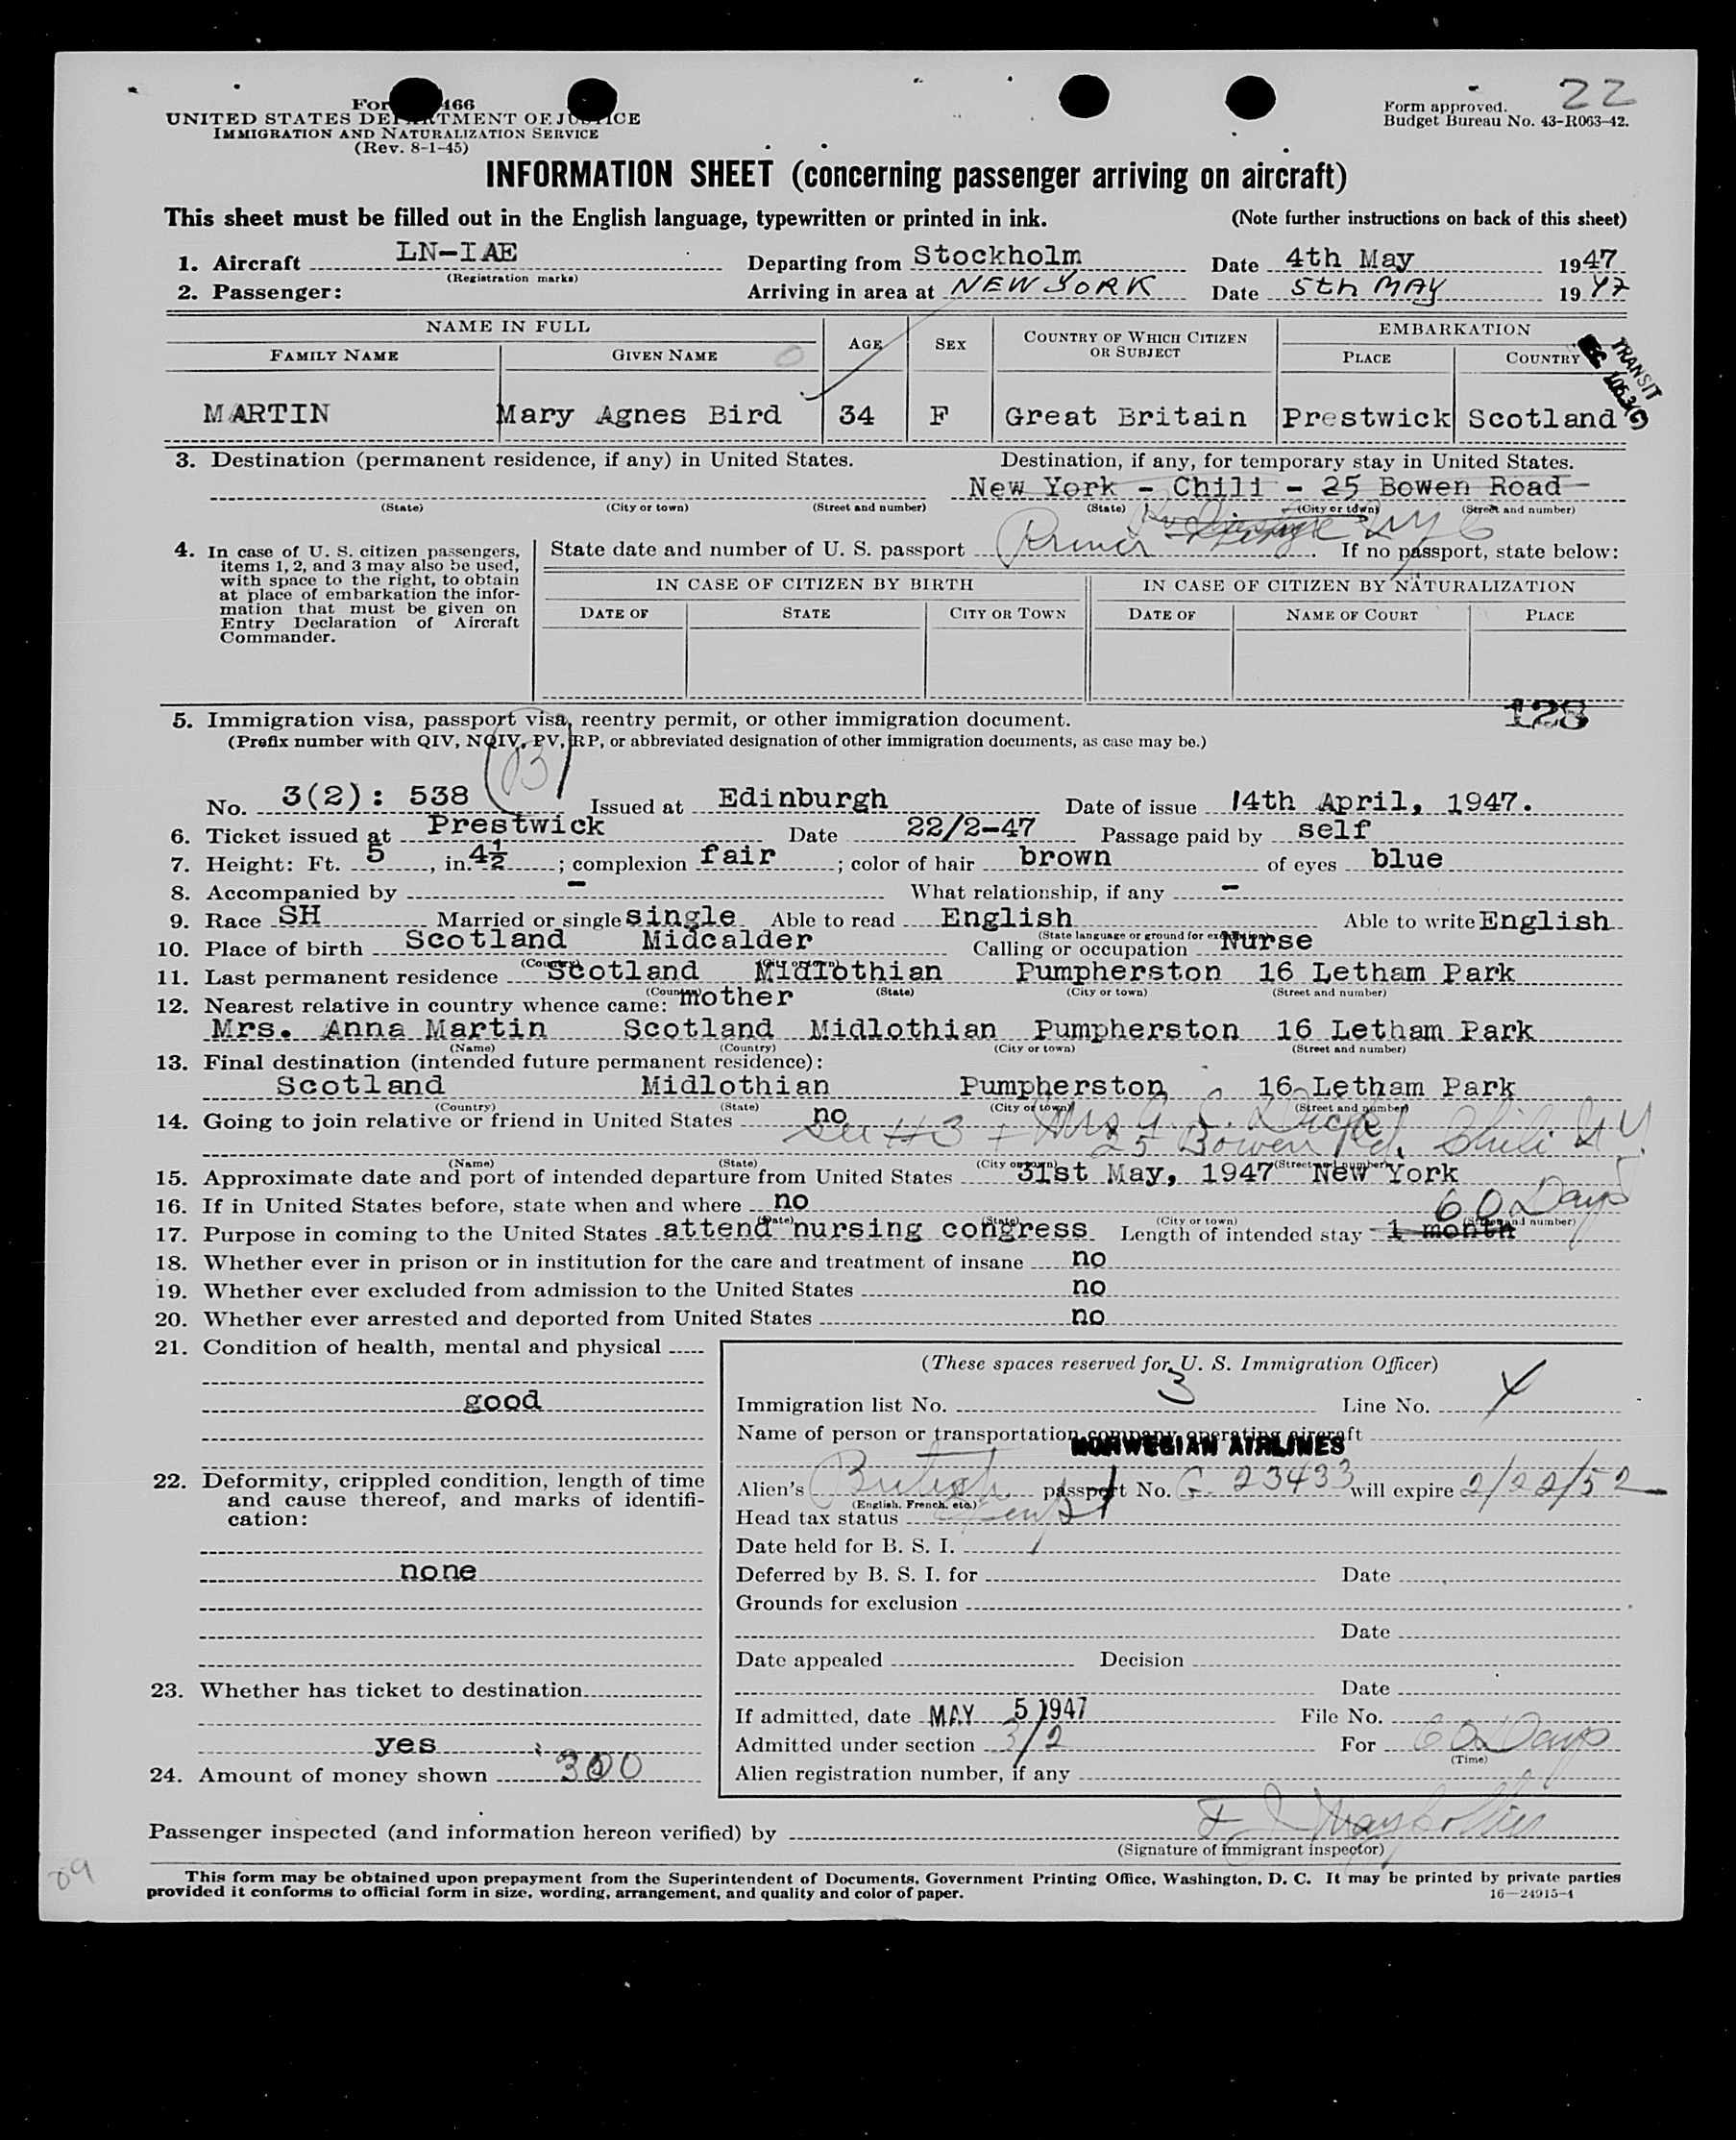 22
For 466
UNITED STATES DEPARTMENT OF JUSTICE
IMMIGRATION AND NATURALIZATION SERVICE
(Rev. 8-1-45)
Form approved.
Budget Bureau No. 43-R063-42.
INFORMATION SHEET (concerning passenger arriving on aircraft)
This sheet must be filled out in the English language, typewritten or printed in ink. (Note further instructions on back of this sheet)
1. Aircraft LN-IAE Departing from Stockholm Date 4th May 1947
(Registration marks)
2. Passenger: Arriving in area at NEW YORK Date 5th MAY 1947
NAME IN FULL AGE SEX COUNTRY OF WHICH CITIZEN OR SUBJECT EMBARKATION
FAMILY NAME GIVEN NAME PLACE COUNTRY
TRANSIT
MARTIN Mary Agnes Bird 34 F Great Britain Prestwick Scotland
3. Destination (permanent residence, if any) in United States. Destination, if any, for temporary stay in United States.
New York - Chili - 25 Bowen Road
(State) (City or town) (Street and number) (State) (City or town) (Street and number)
4. In case of U. S. citizen passengers, items 1, 2, and 3 may also be used, with space to the right, to obtain at place of embarkation the information that must be given on Entry Declaration of Aircraft Commander.
State date and number of U. S. passport If no passport, state below:
IN CASE OF CITIZEN BY BIRTH IN CASE OF CITIZEN BY NATURALIZATION
DATE OF STATE CITY OR TOWN DATE OF NAME OF COURT PLACE
128
5. Immigration visa, passport visa, reentry permit, or other immigration document.
(Prefix number with QIV, NQIV, PV, RP, or abbreviated designation of other immigration documents, as case may be.)
No. 3(2): 538 Issued at Edinburgh Date of issue 14th April, 1947.
6. Ticket issued at Prestwick Date 22/2-47 Passage paid by self
7. Height: Ft. 5, in. 4½; complexion fair; color of hair brown of eyes blue
8. Accompanied by - What relationship, if any -
9. Race SH Married or single single Able to read English Able to write English
(State language or ground for exemption)
10. Place of birth Scotland Midcalder Calling or occupation Nurse
(Country) (City or town)
11. Last permanent residence Scotland Midlothian Pumpherston 16 Letham Park
(Country) (State) (City or town) (Street and number)
12. Nearest relative in country whence came: mother
Mrs. Anna Martin Scotland Midlothian Pumpherston 16 Letham Park
(Name) (Country) (City or town) (Street and number)
13. Final destination (intended future permanent residence):
Scotland Midlothian Pumpherston 16 Letham Park
(Country) (State) (City or town) (Street and number)
14. Going to join relative or friend in United States no
See #3 + Mrs G. C. Dick
25 Bowen Rd. Chili NY
(Name) (State) (City or town) (Street and number)
15. Approximate date and port of intended departure from United States 31st May, 1947 New York
16. If in United States before, state when and where no
(Date) (State) (City or town) (Street and number)
60 Days
17. Purpose in coming to the United States attend nursing congress Length of intended stay 1 month
18. Whether ever in prison or in institution for the care and treatment of insane no
19. Whether ever excluded from admission to the United States no
20. Whether ever arrested and deported from United States no
21. Condition of health, mental and physical
good
22. Deformity, crippled condition, length of time and cause thereof, and marks of identification:
none
23. Whether has ticket to destination
yes
24. Amount of money shown 300
(These spaces reserved for U. S. Immigration Officer)
Immigration list No. 3 Line No. 4
Name of person or transportation company operating aircraft
NORWEGIAN AIRLINES
Alien's British passport No. G 23433 will expire 2/22/52
(English, French, etc.)
Head tax status
Date held for B. S. I.
Deferred by B. S. I. for Date
Grounds for exclusion
Date
Date appealed Decision
Date
If admitted, date MAY 5 1947 File No.
Admitted under section 3/2 For 60 Days
(Time)
Alien registration number, if any
Passenger inspected (and information hereon verified) by
(Signature of immigrant inspector)
89
This form may be obtained upon prepayment from the Superintendent of Documents, Government Printing Office, Washington, D. C. It may be printed by private parties
provided it conforms to official form in size, wording, arrangement, and quality and color of paper. 16—24915-1